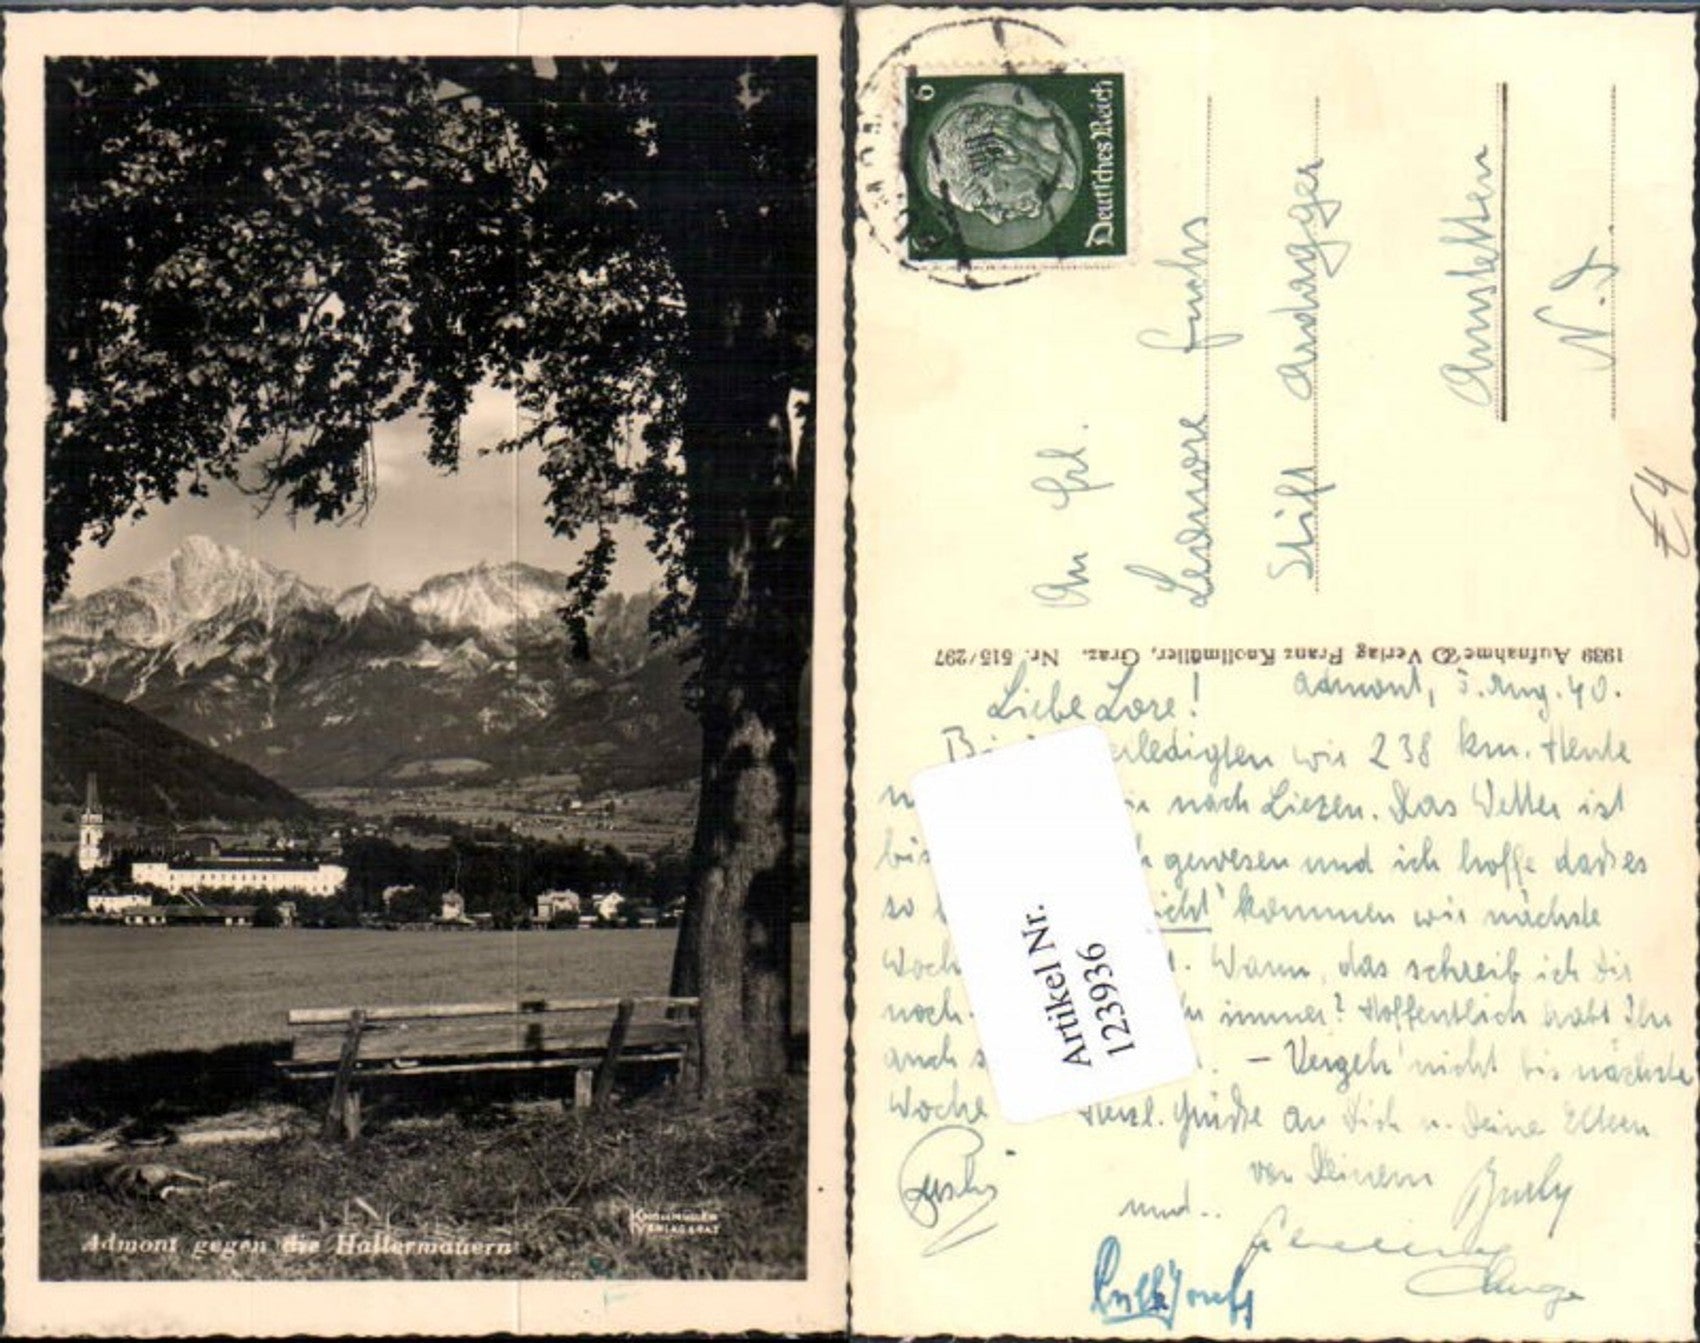 Admont gegen die Hallermauern
KNOLLMÜLLER
VERLAG GRAZ
6
Deutsches Reich
An Frl.
Leonore Fuchs
Stift Ardagger
Amstetten
N. D.
E4
1939 Aufnahme Verlag Franz Knollmüller, Graz. Nr. 515/297
Admont, 5. Aug. 40.
Liebe Lore!
erledigten wir 238 km. Heute
nach Liezen. Das Wetter ist
bis gewesen und ich hoffe das es
so kommen wir nächste
Woch Wann, das schreib ich Dir
noch. immer? Hoffentlich habt Ihr
auch - Vergeh' nicht bis nächste
Woche Herzl. Grüße an Dich u. Deine Eltern
von Deinem
und..
Artikel Nr.
123936